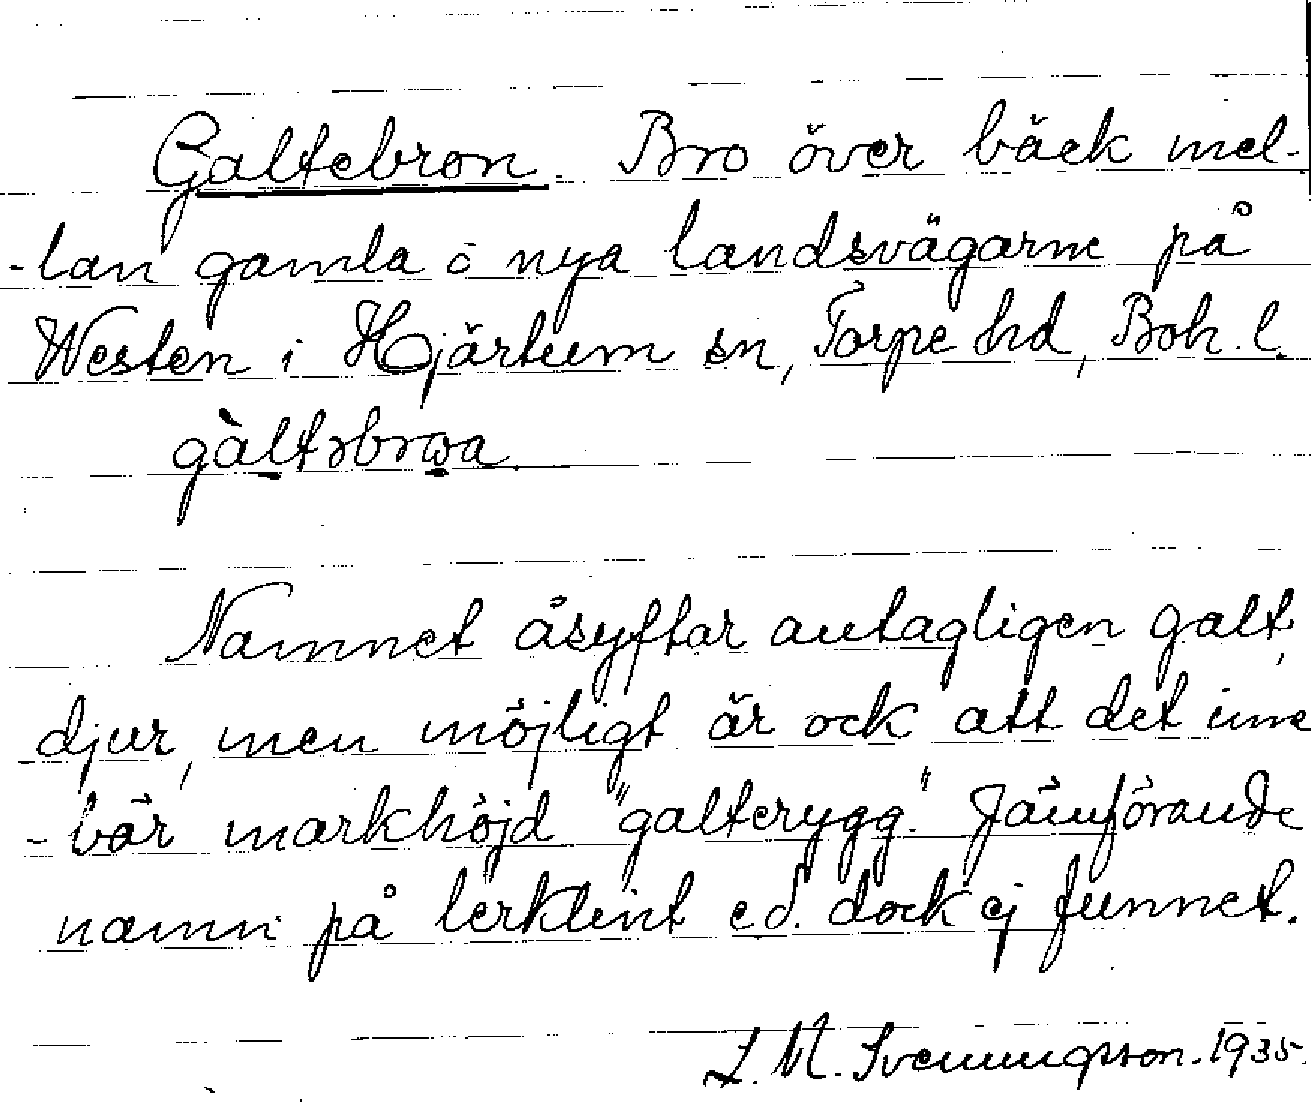 Galtebron. Bro över bäck mel-
-lan gamla o nya landsvägarne på
Westen i Hjärtum sn, Torpe hd, Boh. l.
gàltəbrωa
Namnet åsyftar antagligen galt,
djur, men möjligt är ock att det inne
-bär markhöjd "galterygg". Jämförande
namn på lerklint e.d. dock ej funnet.
L. M. Svenungsson. 1935.